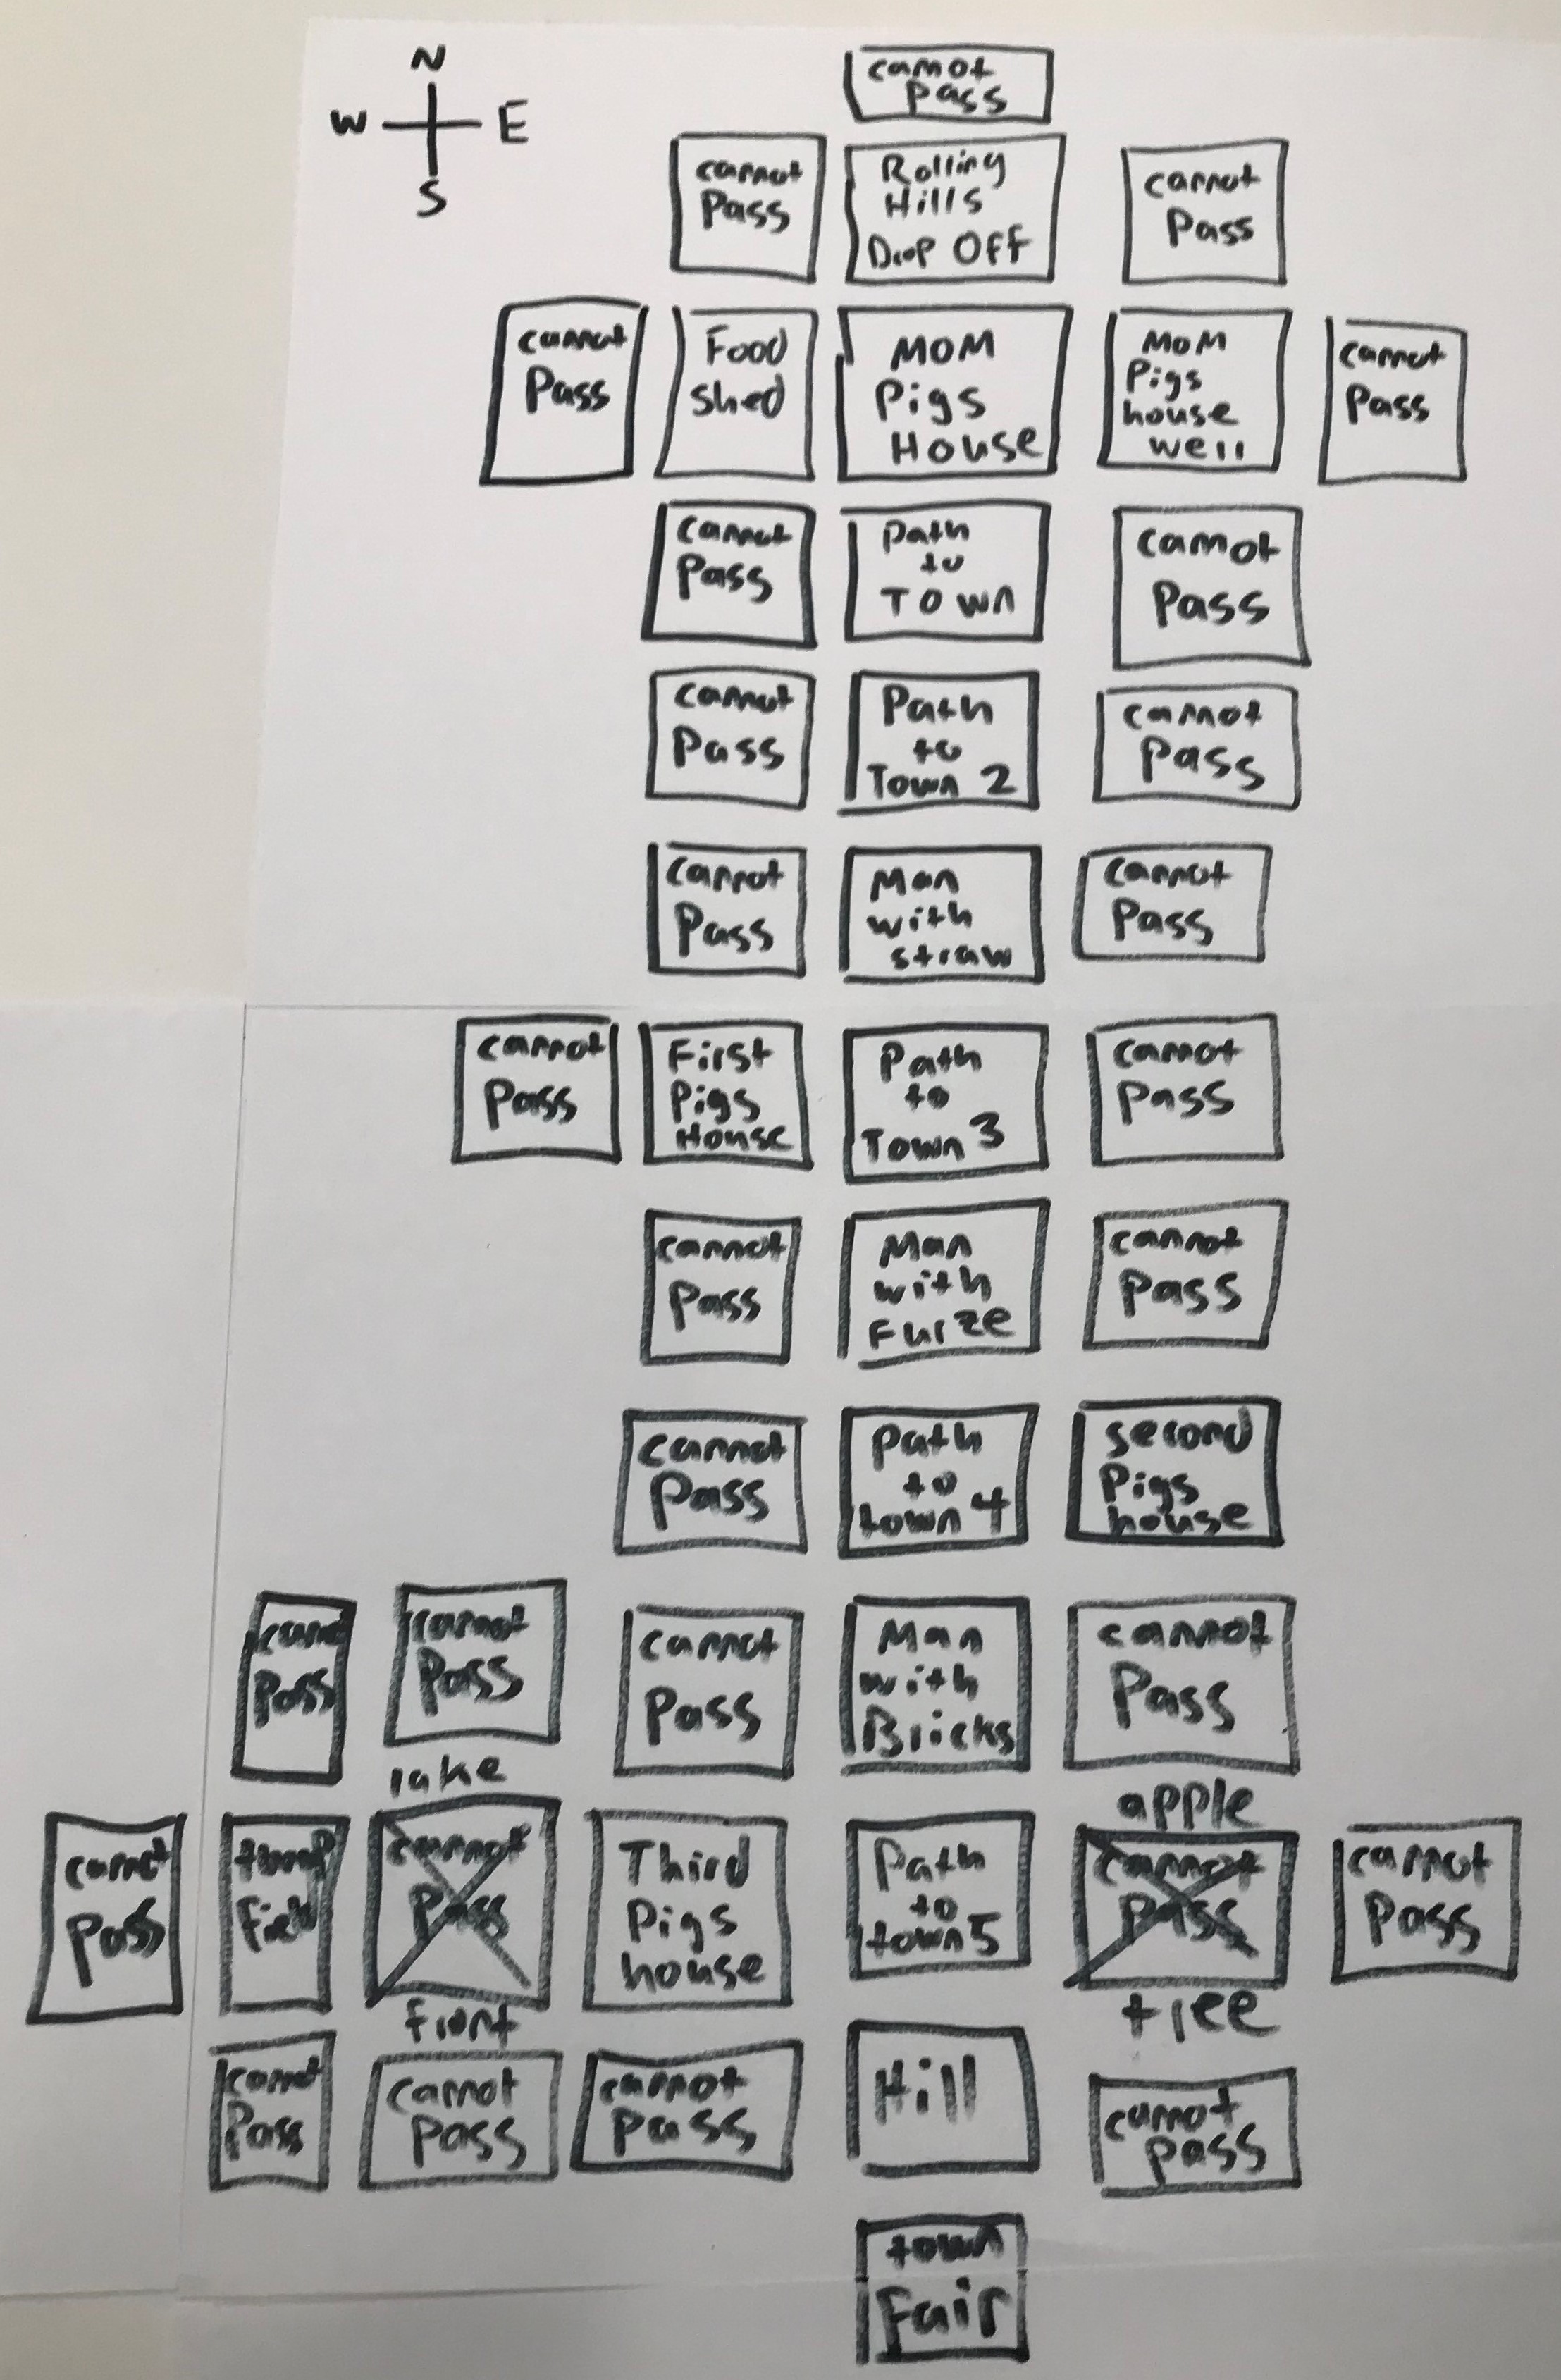 N
W E
S
cannot
Pass
cannot
Pass
Rolling
Hills
Drop Off
cannot
Pass
cannot
Pass
Food
shed
MOM
Pigs
House
MOM
Pigs
house
well
cannot
Pass
cannot
Pass
Path
to
TOWN
cannot
Pass
cannot
Pass
Path
to
Town 2
cannot
Pass
cannot
Pass
Man
with
straw
cannot
Pass
cannot
Pass
First
Pigs
House
Path
to
Town 3
cannot
Pass
cannot
Pass
Man
with
Furze
cannot
Pass
cannot
Pass
Path
to
town 4
second
Pigs
house
Pass
cannot
Pass
cannot
Pass
Man
with
Bricks
cannot
Pass
cannot
Pass
Field
lake
cannot
Pass
front
Third
Pigs
house
Path
to
town 5
apple
cannot
Pass
tree
cannot
Pass
cannot
Pass
cannot
Pass
cannot
Pass
Hill
cannot
Pass
town
Fair